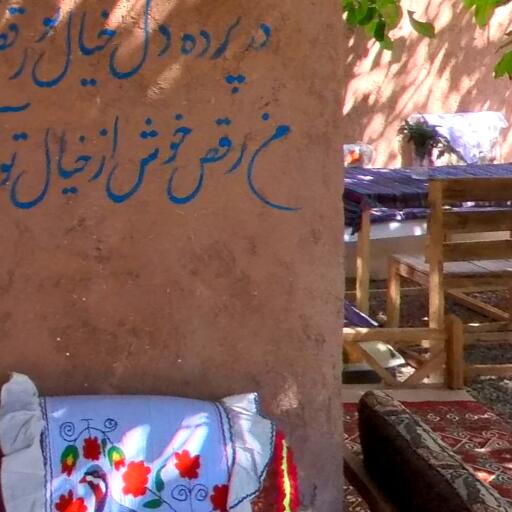 در پرده دل خیال تو رقص
من رقص خوش از خیال تو آ